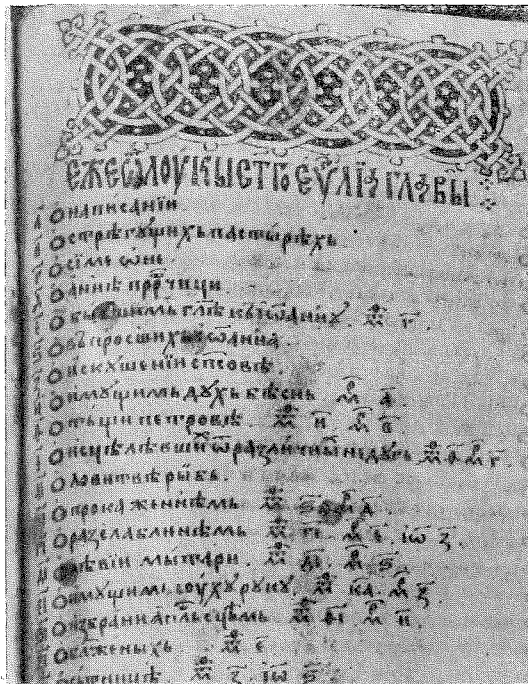 ЕЖЕ Ѿ ЛОУКЫ СТГО ЕѴЛІꙖ ГЛАВЫ
О написанїи
О стрѣгѹщихь пастырѣхь
О сїмеѡнѣ
О аннѣ прⷪ҇рчици
О бывшимь гл҃ѣ къ їѡаннѹ. мⷴ҇ г҃.
О въпросшихь їѡанна.
О искѹшенїи сп҃совѣ.
О имѹщимь дѹхь бѣснь мⷬ҇ а҃.
О тьщи петровѣ. мⷴ҇ и҃ мⷬ҇ в҃
О исцѣлѣвшїи ѿ различныи недѹгь мⷴ҇ ѳ҃ мⷬ҇ г҃.
О ловитвѣ рыбь.
О прокаженнѣмь мⷴ҇ ѕ҃ мⷬ҇ д҃.
О раслабленнѣмь мⷴ҇ гі҃. мⷬ҇ е҃. їѡ з҃
О леѵїи мытари. мⷴ҇ ді҃. мⷬ҇ ѕ҃
О имѹщимь сѹхѹ рѹкѹ мⷴ҇ ка҃. мⷬ҇ з҃
О избранїи ап҃льсцѣмь мⷴ҇ ѳі҃ мⷬ҇ и҃
О блаженыхь мⷴ҇ е҃
О сътницѣ. мⷴ҇ з҃ їѡ ѕ҃.